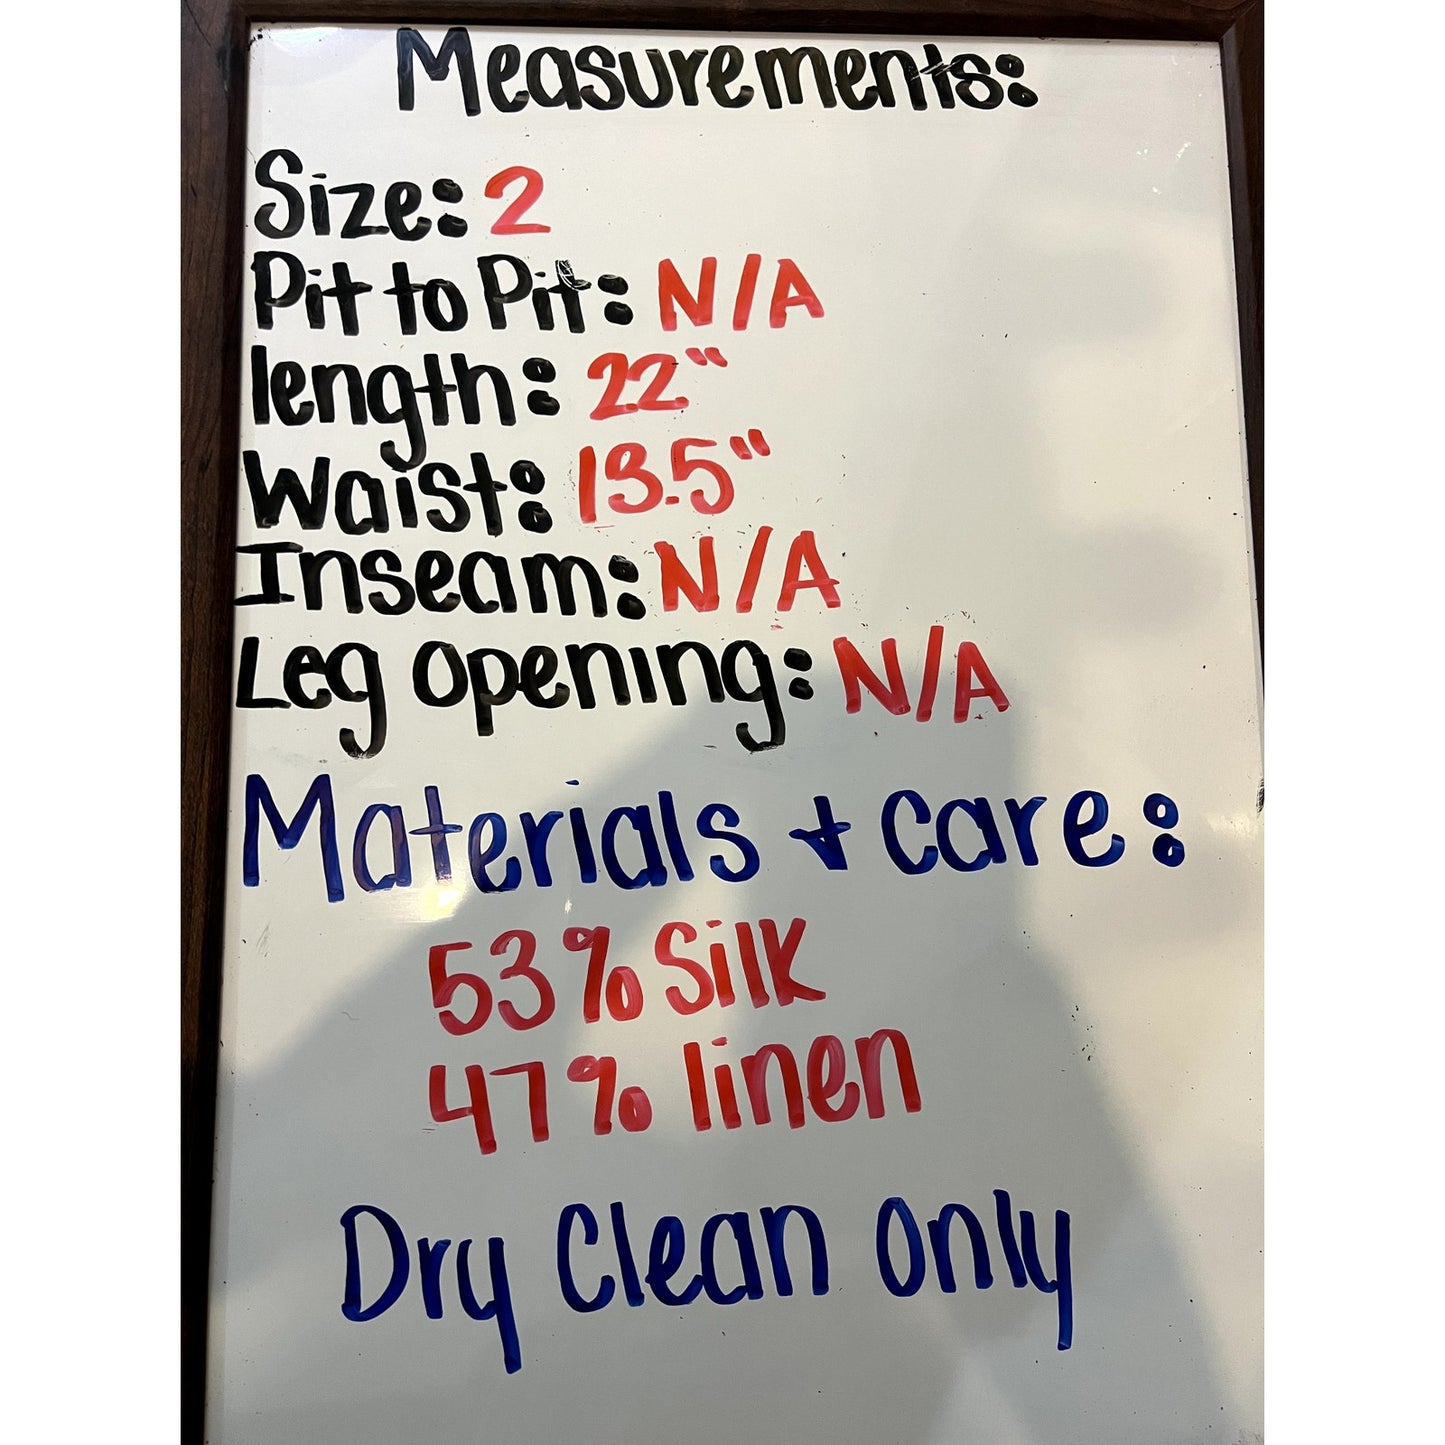 Measurements:
Size: 2
Pit to Pit: N/A
length: 22"
Waist: 13.5"
Inseam: N/A
Leg opening: N/A
Materials + care:
53% Silk
47% linen
Dry Clean only